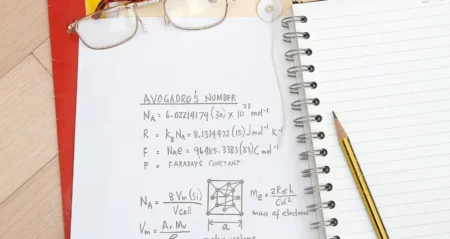 AVOGADRO'S NUMBER
N_A = 6.02214179(30) x 10^23 mol^-1
R = k_B N_A = 8.314472(15) J mol^-1 K^-1
F = N_A e = 96485.3383(83) C mol^-1
F = FARADAY'S CONSTANT
N_A = 8 V_m (Si) / V_cell
a
m_e = 2R∞h / cα²
mass of electron
V_m = A_r M_u